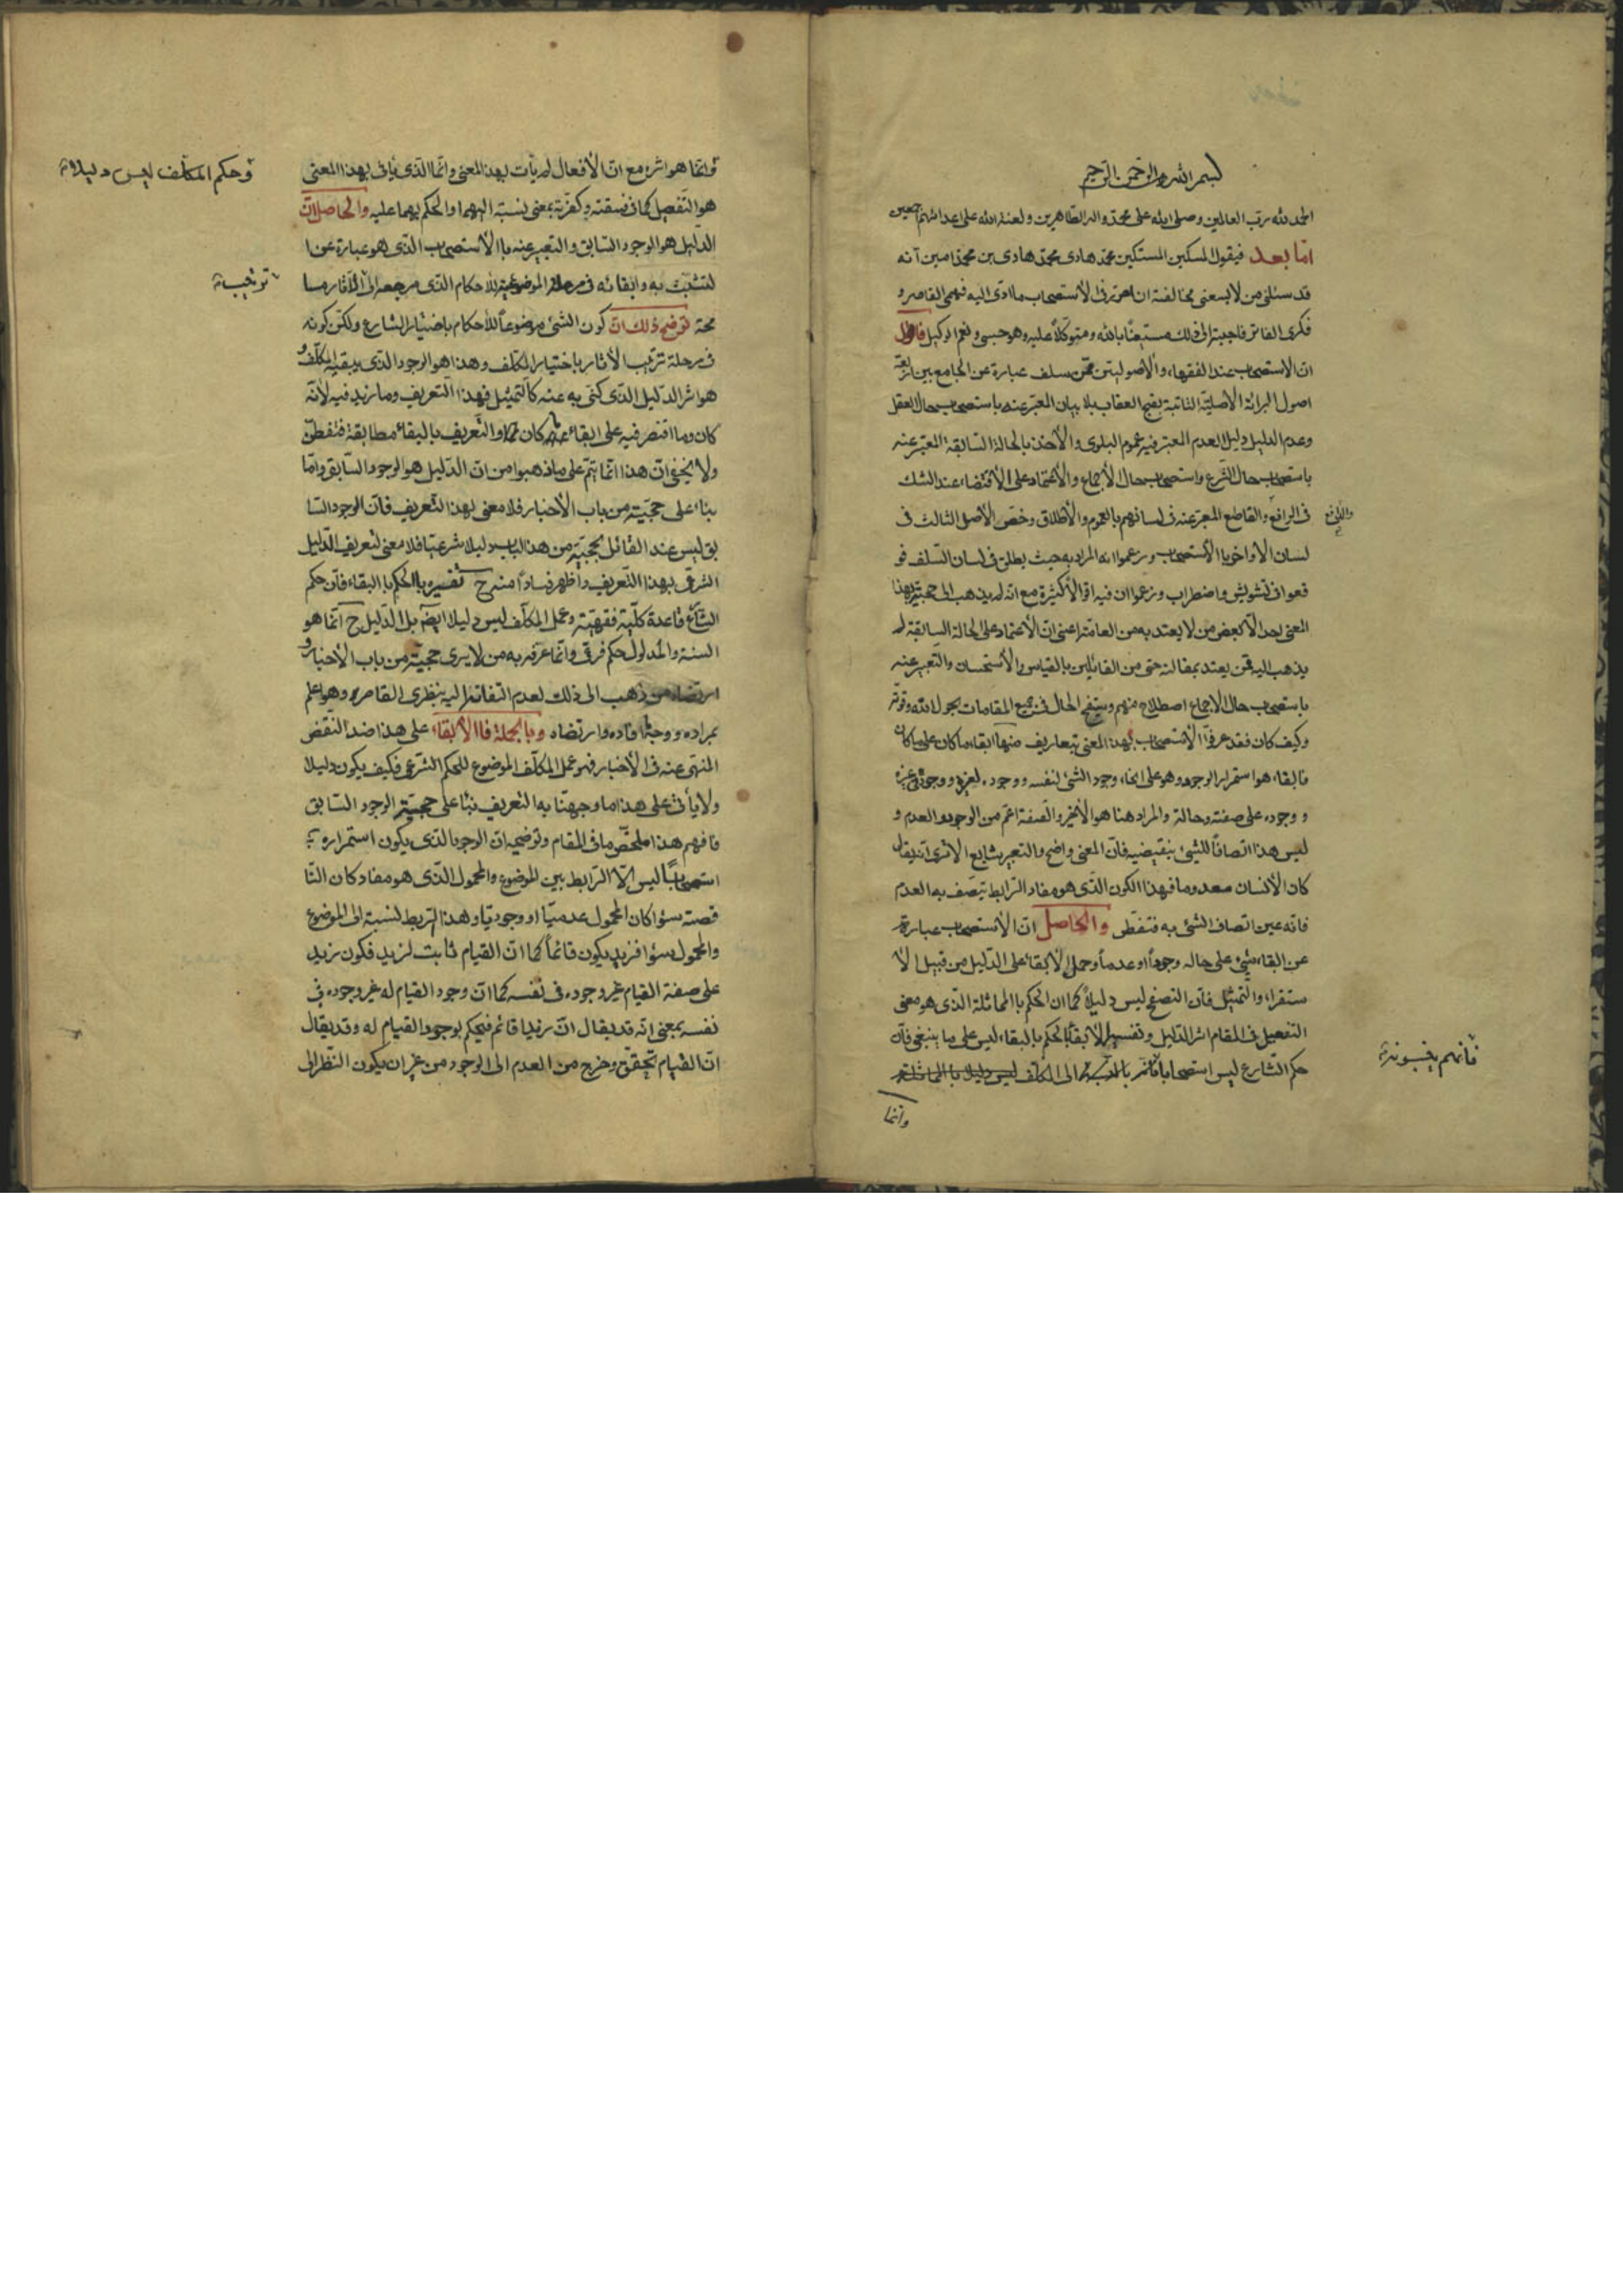 بسم الله الرحمن الرحيم
الحمد لله رب العالمين وصلى الله على محمد واله الطاهرين ولعنة الله على اعدائهم اجمعين
اما بعد فيقول المسكين المستكين محمد هادى بن محمد امين انه
قد سئلنى من لا يسعنى مخالفته ان احرر فى الاستصحاب ما ادى اليه فهمى القاصر و
فكرى الفاتر فاجبته الى ذلك مستعينا بالله ومتوكلا عليه وهو حسبى ونعم الوكيل فاقول
ان الاستصحاب عند الفقهاء والأصوليين ممن سلف عبارة عن الجامع بين اربعة
اصول البرائة الاصلية الثابتة بقبح العقاب بلا بيان المعبر عنه باستصحاب حال العقل
وعدم الدليل دليل العدم المعتبر فيه عموم البلوى والأخذ بالحالة السابقة المعبر عنه
باستصحاب حال الشرع واستصحاب حال الأجماع والأعتماد على الأقتضاء عند الشك
فى الرافع والقاطع المعبر عنه فى لسانهم بالعموم والأطلاق وخص الأصل الثالث فى
لسان الأواخر باالأستصحاب وزعموا انه المراد به حيث يطلق فى لسان السلف فو
قعوا فى تشويش واضطراب وزعموا ان فيه اقوالا كثيرة مع انه لم يذهب الى حجيته بهذا
المعنى احد الا بعض من لا يعتد به من العامة اعنى ان الأعتماد على الحالة السابقة لم
يذهب اليه ممن يعتد بمقالته حتى من القائلين بالقياس والأستحسان والتعبير عنه
باستصحاب حال الاجماع اصطلاح منهم وستضح الحال فى جميع المقامات بحول الله وقوته
وكيف كان فقد عرفوا الأستصحاب بهذا المعنى بتعاريف منها ابقاء ما كان على ما كان
فالبقاء هو استمرار الوجود وهو على انحاء وجود الشئ لنفسه ووجوده لغيره ووجوده فى غيره
و وجوده على صفة وحالة والمراد هنا هو الأخير والصفة اعم من الوجود والعدم و
ليس هذا اتصافا للشئ بنقيضيه فان المعنى واضح والتعبير شايع الا ترى انه يقال
كان الأنسان معدوما فهذا الكون الذى هو مفاد الرابط يتصف به العدم
فانه عين اتصاف الشئ به فتفطن والحاصل ان الأستصحاب عبارة
عن ابقاء شئ على حاله وجودا او عدما وحمل الابقاء على الدليل من قبيل الا
ستقراء والتمثيل فان التصفح ليس دليلا كما ان الحكم باالمماثلة الذى هو معنى
التفعيل فى المقام اثر الدليل وتفسير الابقاء بالحكم بالبقاء ليس على ما ينبغى فان
حكم الشارع ليس استصحابا
فانهم ينسبونه
وانما
وانما هو اثره مع ان الأفعال لم يأت بهذا المعنى وانما الذى يأتى بهذا المعنى
وحكم المكلف ليس دليلا
هو التفعيل كما فى فسقته وكفرته بمعنى نسبته اليهما والحكم بهما عليه والحاصل ان
الدليل هو الوجود السابق والتعبير عنه باالأستصحاب الذى هو عبارة عن ا
لتشبث به وابقائه فى مرحلة الموضوعية للاحكام الذى مرجعه الى الآثار مسا
محة توضيح ذلك ان كون الشئ موضوعا للأحكام باختيار الشارع ولكن كونه
فى مرحلة ترتيب الأثار باختيار المكلف وهذا هو الوجود الذى يبقيه المكلف و
هو اثر الدليل الذى كنى به عنه كالتمثيل فهذا التعريف وما زيد فيه لأنه
كان وما اقتصر فيه على ابقاء ما كان والتعريف بالبقاء مطابقة فتفطن
ولا يخفى ان هذا انما يتم على ما ذهبوا من ان الدليل هو الوجود السابق واما
بناء على حجيته من باب الأخبار فلا معنى لهذا التعريف فان الوجود السا
بق ليس عند القائل بحجيته من هذا الباب دليلا شرعيا فلا معنى لتعريف الدليل
الشرعى بهذا التعريف واظهر فسادا منه ح تفسيره باالحكم باالبقاء فان حكم
الشارع قاعدة كلية فقهية وعمل المكلف ليس دليلا ايضا بل الدليل ح انما هو
السنة والمدلول حكم فرعى وانما عرفه به من لا يرى حجيته من باب الأخبار و
ارتضاه من ذهب الى ذلك لعدم التفاته اليه بنظرى القاصر وهو اعلم
بمراده ووجه افاده وارتضاه وباالجملة فاالأبقاء على هذا ضد النقض
المنهى عنه فى الأخبار فهو عمل المكلف الموضوع للحكم الشرعى فكيف يكون دليلا
ولا يأتى على هذا ما وجهنا به التعريف بناء على حجية الوجود السابق
فافهم هذا ملخص ما فى المقام وتوضيحه ان الوجود الذى يكون استمراره
استصحابا ليس الا الرابط بين الموضوع والمحمول الذى هو مفاد كان النا
قصة سواء كان المحمول عدميا او وجوديا وهذا الربط نسبته الى الموضوع
والمحمول سواء فزيد يكون قائما كما ان القيام ثابت لزيد فكون زيد
على صفة القيام غير وجوده فى نفسه كما ان وجود القيام له غير وجوده فى
نفسه بمعنى انه قد يقال ان زيدا قائم فيحكم بوجود القيام له وقد يقال
ان القيام تحقق وخرج من العدم الى الوجود من غير ان يكون النظر الى